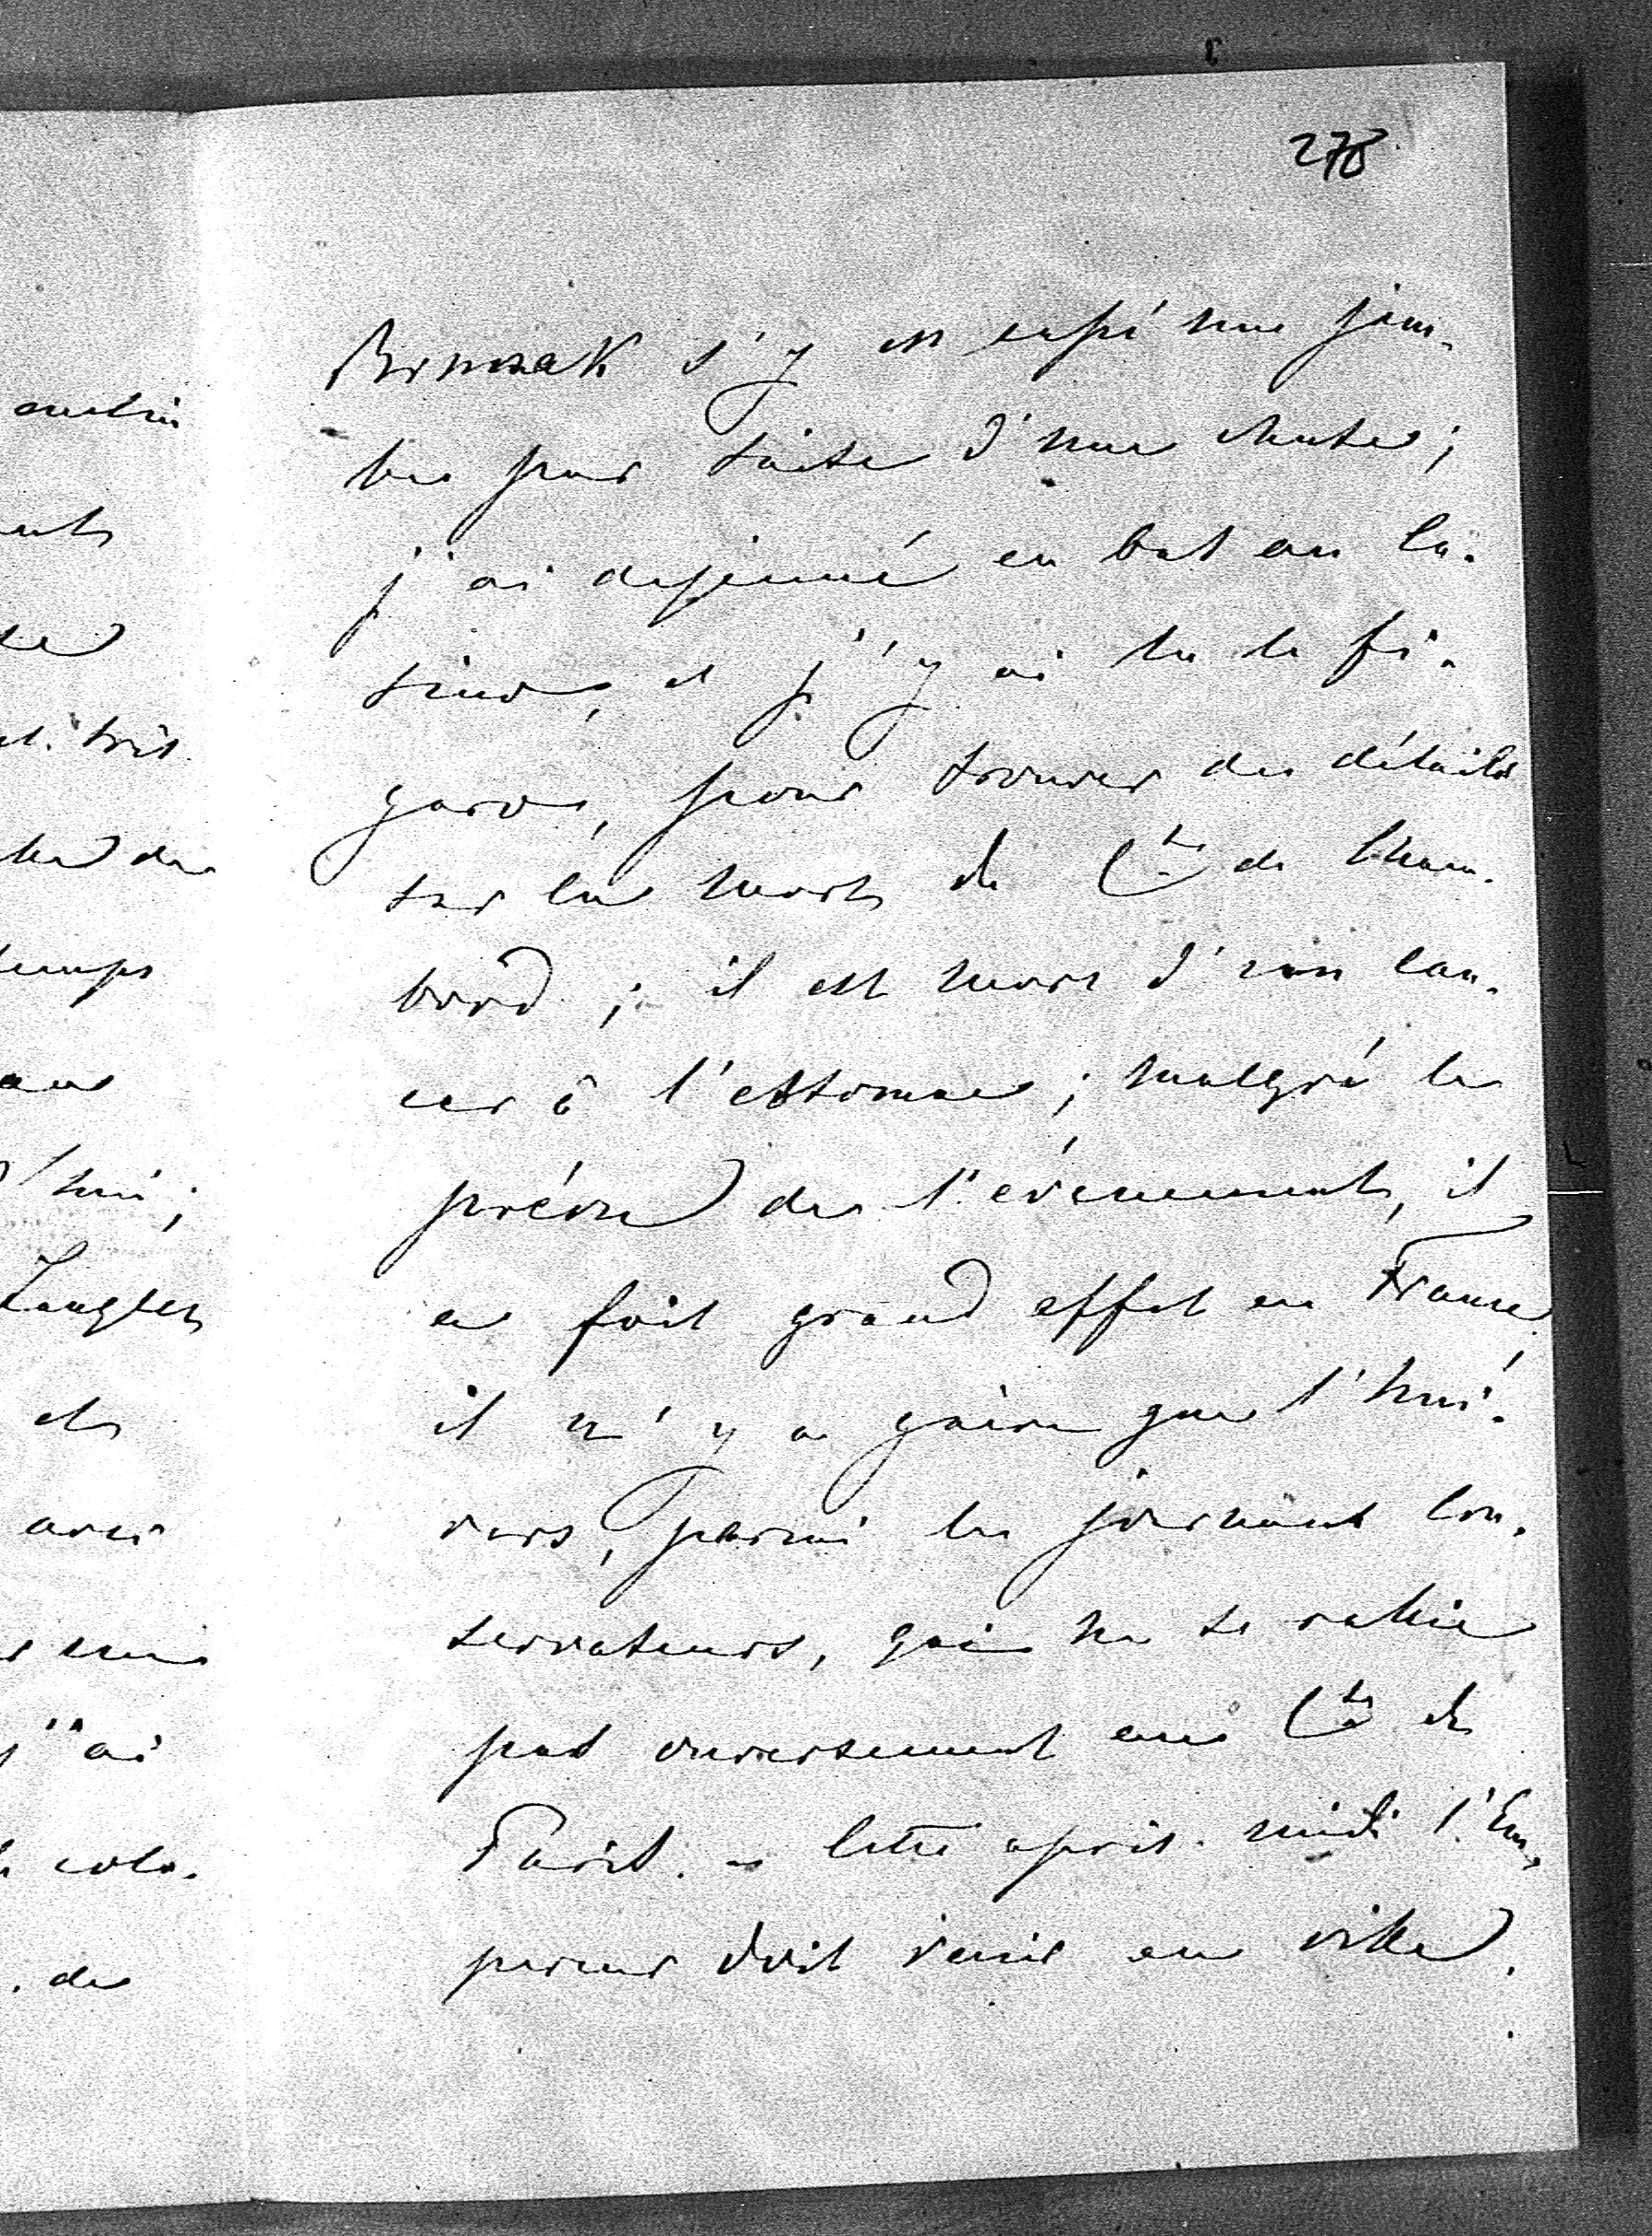 278
s'y est cassé une jam-
be par suite d'une chute;
j'ai dejeuné en bas au Ca-
sino, et j'y ai lu le Fi-
garo, pour trouver des détails
sur la mort du Cte de Cham-
bord; il est mort d'un can-
cer à l'estomac; malgré le
prévu de l'évènement, il
a fait grand effet en France,
il n'y a guère que l'Uni-
vers, parmi les journaux con-
servateurs, qui ne se rallie
pas ouvertement au Cte de
Paris. – Cette après-midi l'Em-
pereur doit venir en ville.
matin
et très
temps
et
avec
j'ai
de